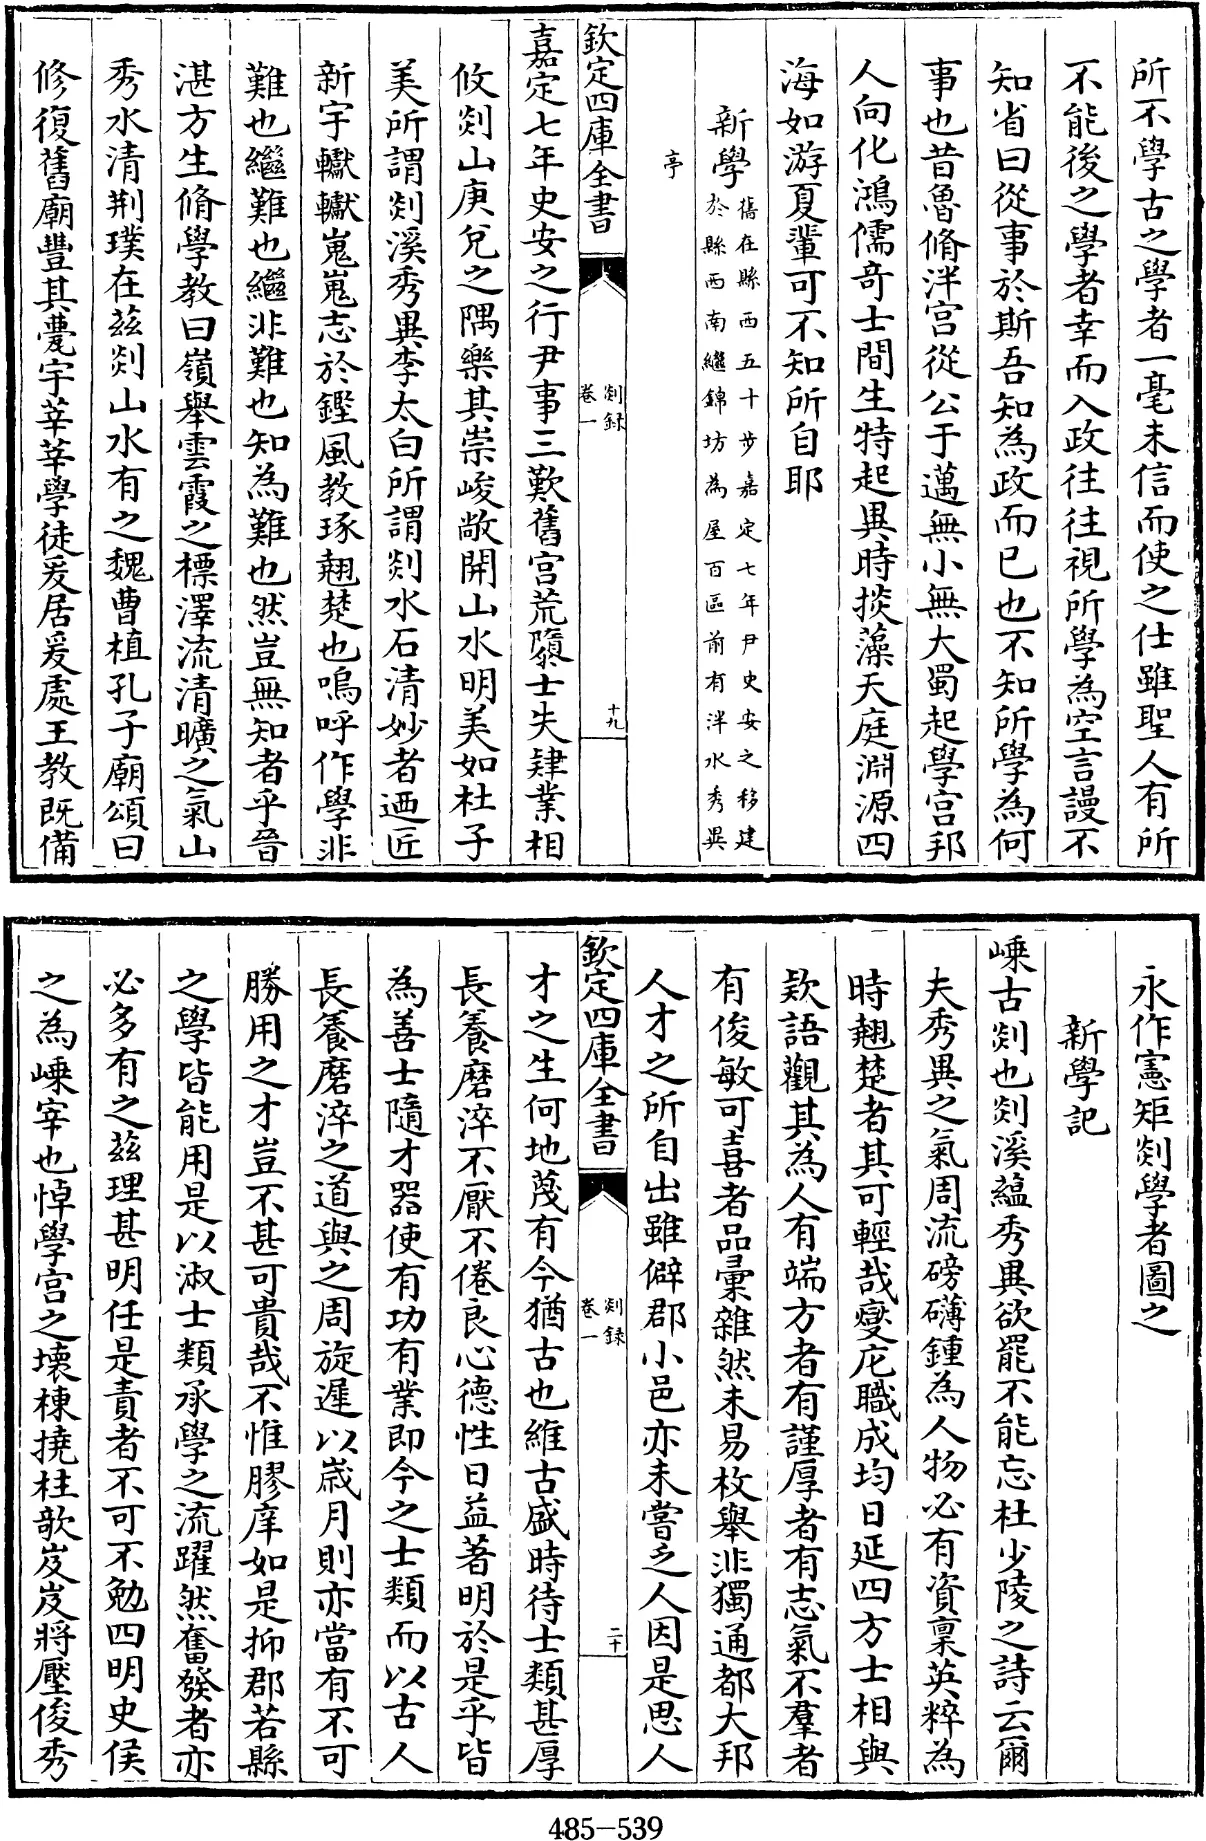 所不學古之學者一毫未信而使之仕雖聖人有所
不能後之學者幸而入政往往視所學為空言謾不
知省曰從事於斯吾知為政而已也不知所學為何
事也昔魯脩泮宫從公于邁無小無大蜀起學宫邦
人向化鴻儒奇士間生特起異時掞藻天庭淵源四
海如游夏輩可不知所自耶
新學舊在縣西五十步嘉定七年尹史安之移建
於縣西南繼錦坊為屋百區前有泮水秀異
亭
欽定四庫全書
剡録
卷一
十九
嘉定七年史安之行尹事三歎舊宫荒隳士失肄業相
攸剡山庚兊之隅樂其崇峻敞開山水明美如杜子
美所謂剡溪秀異李太白所謂剡水石清妙者迺匠
新宇轍轍嵬嵬志於鏗風教琢翹楚也嗚呼作學非
難也繼難也繼非難也知為難也然豈無知者乎晉
湛方生脩學教曰嶺舉雲霞之標澤流清曠之氣山
秀水清荆璞在兹剡山水有之魏曹植孔子廟頌曰
修復舊廟豐其甍宇莘莘學徒爰居爰處王教既備
永作憲矩剡學者圖之
新學記
嵊古剡也剡溪藴秀異欲罷不能忘杜少陵之詩云爾
夫秀異之氣周流磅礴鍾為人物必有資稟英粹為
時翹楚者其可輕哉㷫庀職成均日延四方士相與
欵語觀其為人有端方者有謹厚者有志氣不羣者
有俊敏可喜者品彚雜然未易枚舉非獨通都大邦
人才之所自出雖僻郡小邑亦未嘗乏人因是思人
欽定四庫全書
剡録
卷一
二十
才之生何地蔑有今猶古也維古盛時待士類甚厚
長養磨淬不厭不倦良心德性日益著明於是乎皆
為善士隨才器使有功有業即今之士類而以古人
長養磨淬之道與之周旋遲以嵗月則亦當有不可
勝用之才豈不甚可貴哉不惟膠庠如是抑郡若縣
之學皆能用是以淑士類承學之流躍然奮發者亦
必多有之兹理甚明任是責者不可不勉四明史侯
之為嵊宰也悼學宫之壊棟撓柱欹岌岌將壓俊秀
485-539